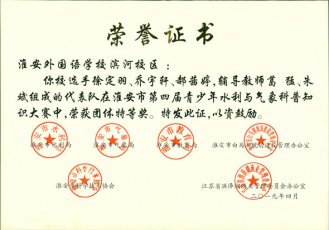 荣誉证书
淮安外国语学校滨河校区：
你校选手徐定羽、乔宇轩、郝茜婷，辅导教师葛猛、朱
斌组成的代表队在淮安市第四届青少年水利与气象科普知
识大赛中，荣获团体特等奖。特发此证，以资鼓励。
淮安市水利局 淮安市气象局 淮安市教育局 淮安市白马湖规划建设管理办公室
淮安市科学技术协会 江苏省洪泽湖管理委员会办公室
二〇一九年四月